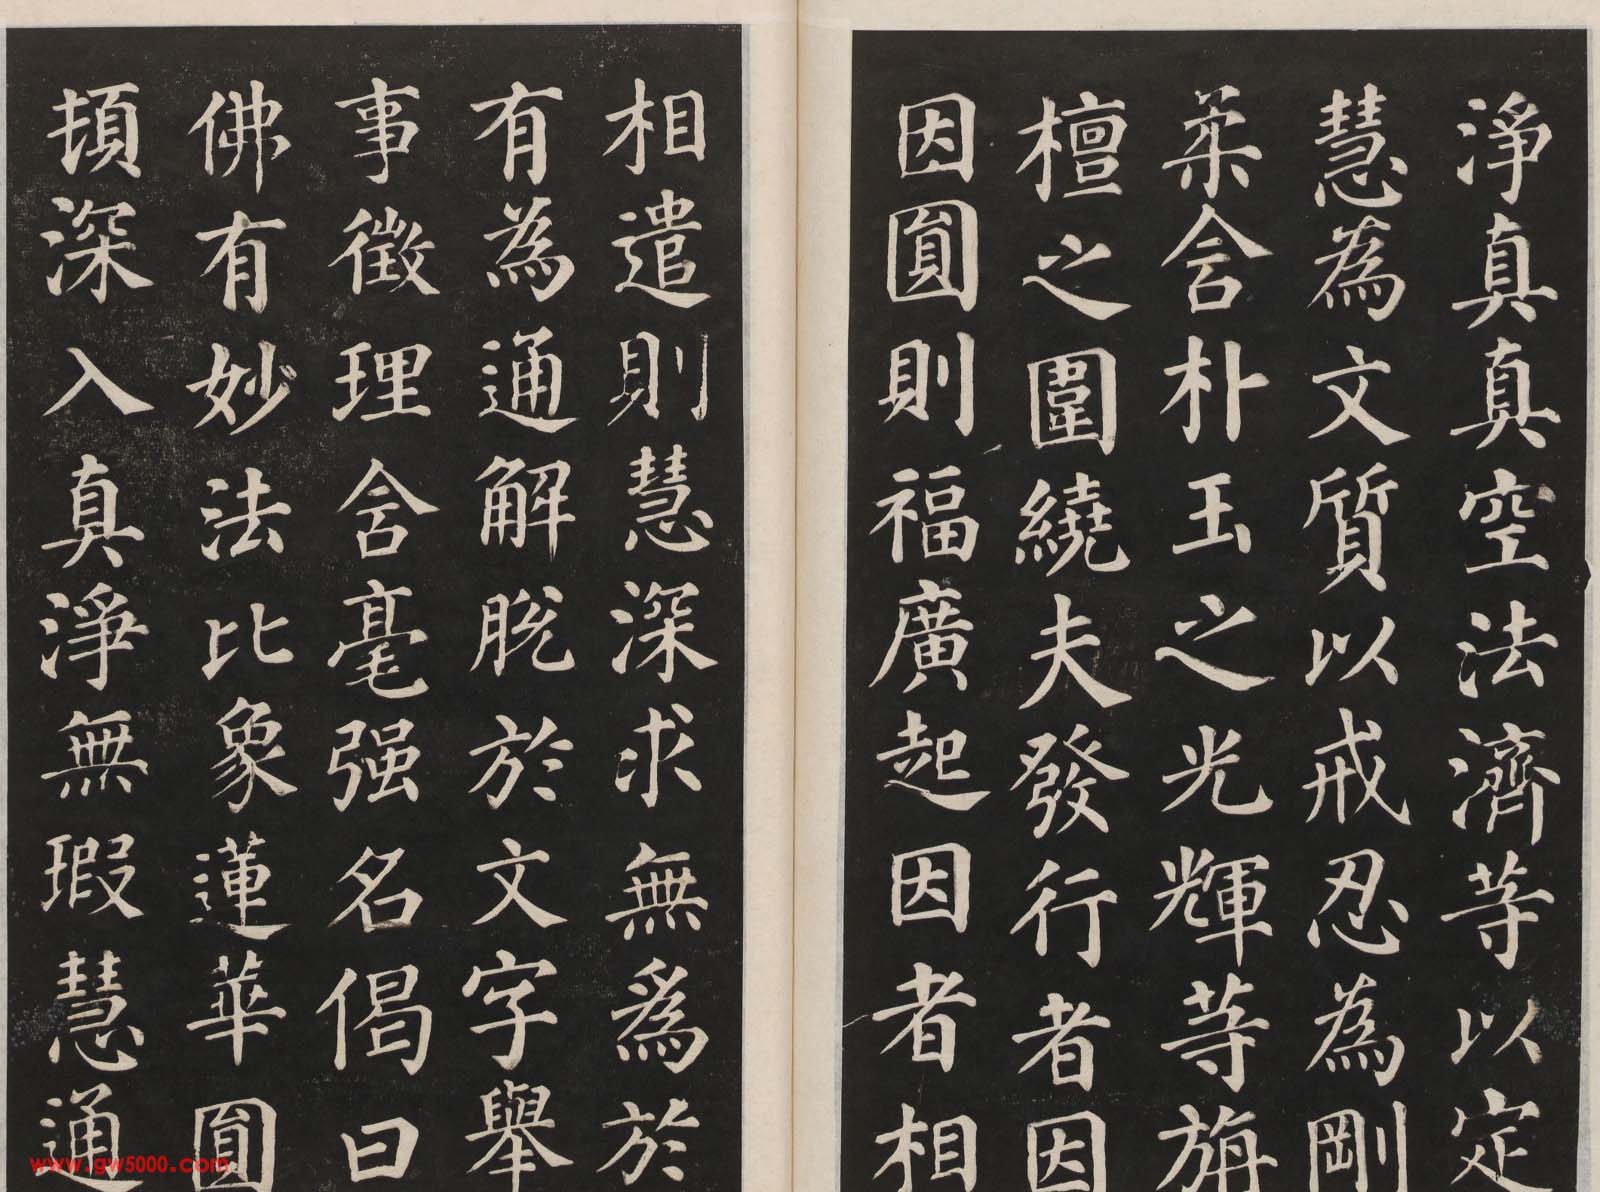 淨真真空法濟等以定
慧為文質以戒忍為剛
柔含朴玉之光輝等旃
檀之圍繞夫發行者因
因圓則福廣起因者相
相遣則慧深求無為於
有為通解脫於文字舉
事徵理含毫强名偈曰
佛有妙法比象蓮華圓
頓深入真淨無瑕慧通
www.gw5000.com